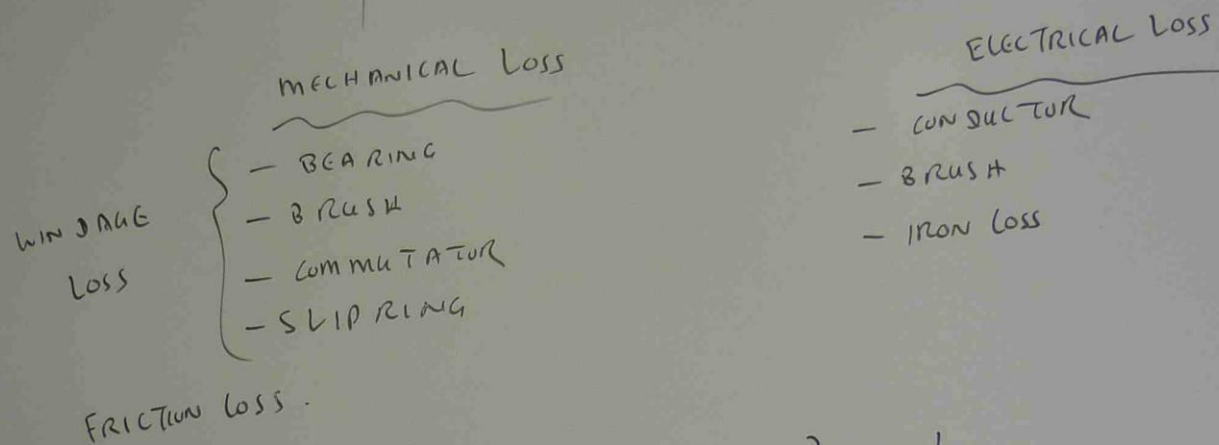 MECHANICAL LOSS
WINDAGE
LOSS
- BEARING
- BRUSH
- COMMUTATOR
- SLIPRING
FRICTION LOSS.
ELECTRICAL LOSS
- CONDUCTOR
- BRUSH
- IRON LOSS